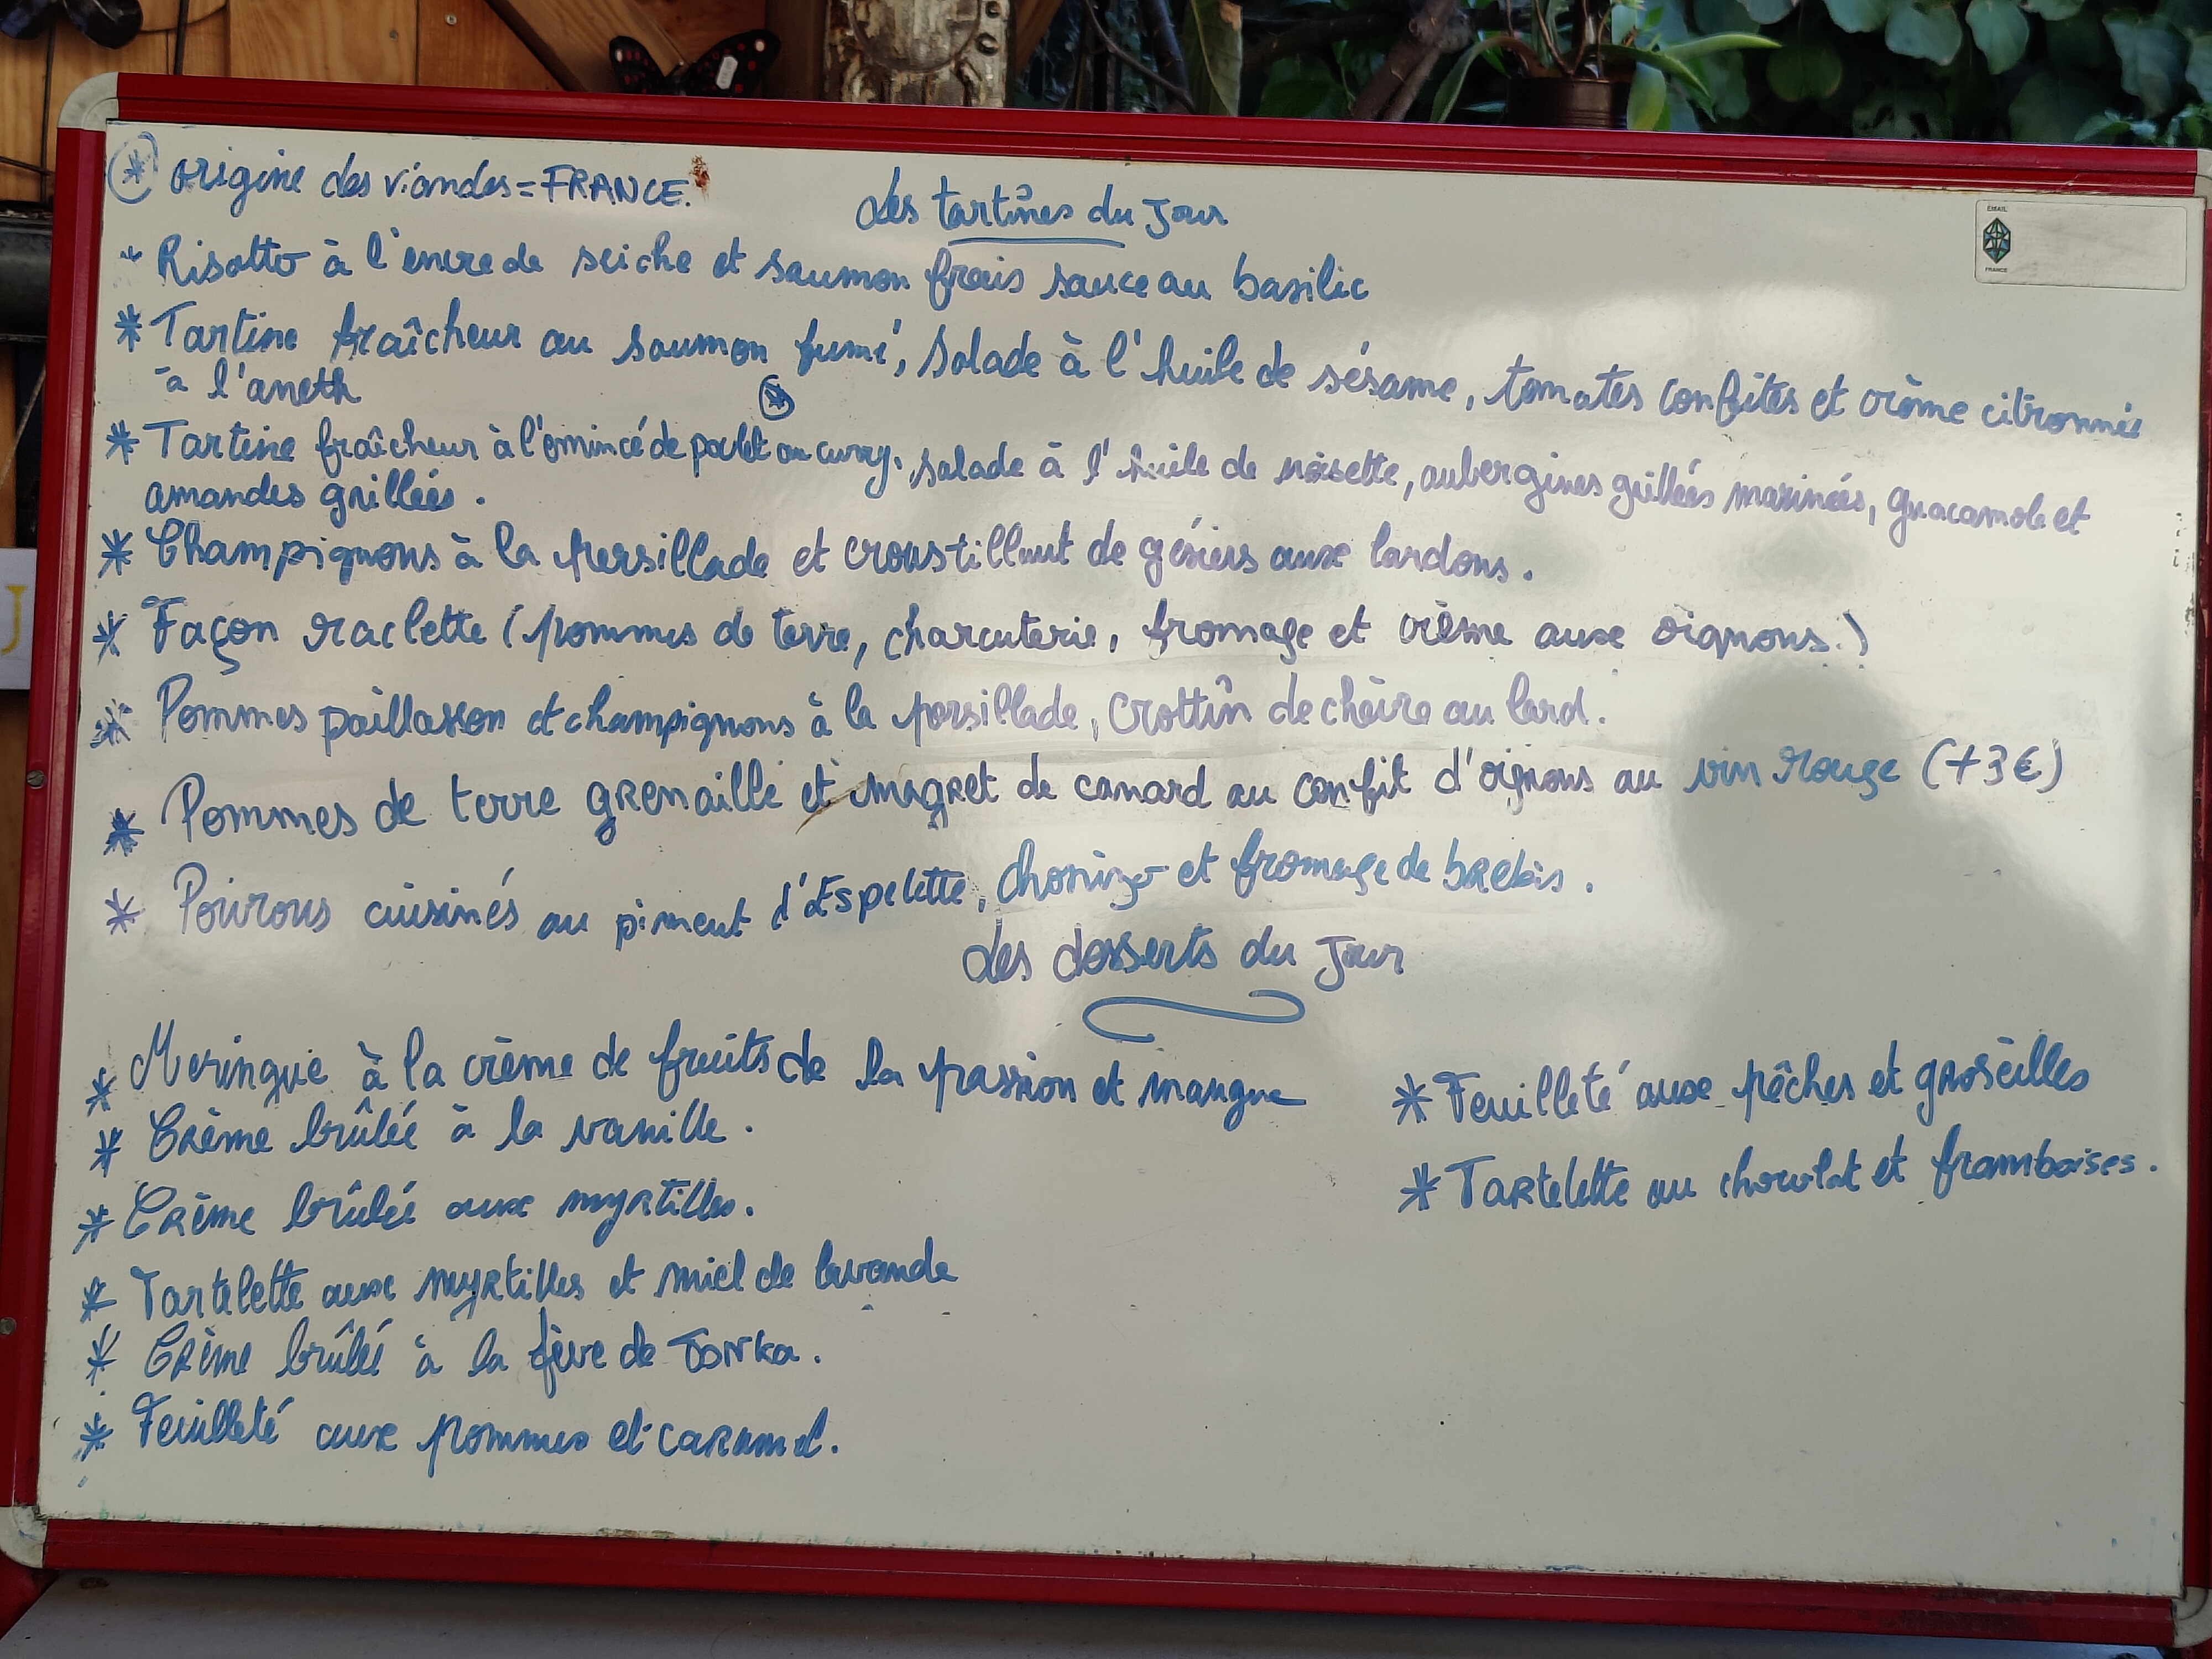 * origine des viandes = FRANCE.
Les tartines du jour
* Risotto à l'encre de seiche et saumon frais sauce au basilic
* Tartine fraîcheur au saumon fumé, salade à l'huile de sésame, tomates confites et crème citronnée
à l'aneth
* Tartine fraîcheur à l'émincé de poulet * au curry, salade à l'huile de noisette, aubergines grillées marinées, guacamole et
amandes grillées.
* Champignons à la persillade et croustillant de gésiers aux lardons.
* Façon raclette (pommes de terre, charcuterie, fromage et crème aux oignons.)
* Pommes paillasson et champignons à la persillade, crottin de chèvre au lard.
* Pommes de terre grenaille et magret de canard au confit d'oignons au vin rouge (+3€)
* Poivrons cuisinés au piment d'Espelette, chorizo et fromage de brebis.
Les desserts du jour
* Meringue à la crème de fruits de la passion et mangue
* Crème brûlée à la vanille.
* Crème brûlée aux myrtilles.
* Tartelette aux myrtilles et miel de lavande
* Crème brûlée à la fève de Tonka.
* Feuilleté aux pommes et caramel.
* Feuilleté aux pêches et groseilles
* Tartelette au chocolat et framboises.
EMAIL
FRANCE
J